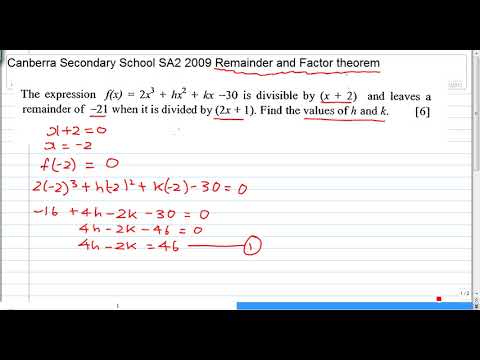 Canberra Secondary School SA2 2009 Remainder and Factor theorem
The expression f(x) = 2x³ + hx² + kx –30 is divisible by (x + 2) and leaves a
remainder of –21 when it is divided by (2x + 1). Find the values of h and k. [6]
x+2=0
x = -2
f(-2) = 0
2(-2)³+h(-2)²+k(-2)-30=0
-16 +4h-2k-30 = 0
4h-2k-46 = 0
4h-2k = 46 ——— ①
1 / 2